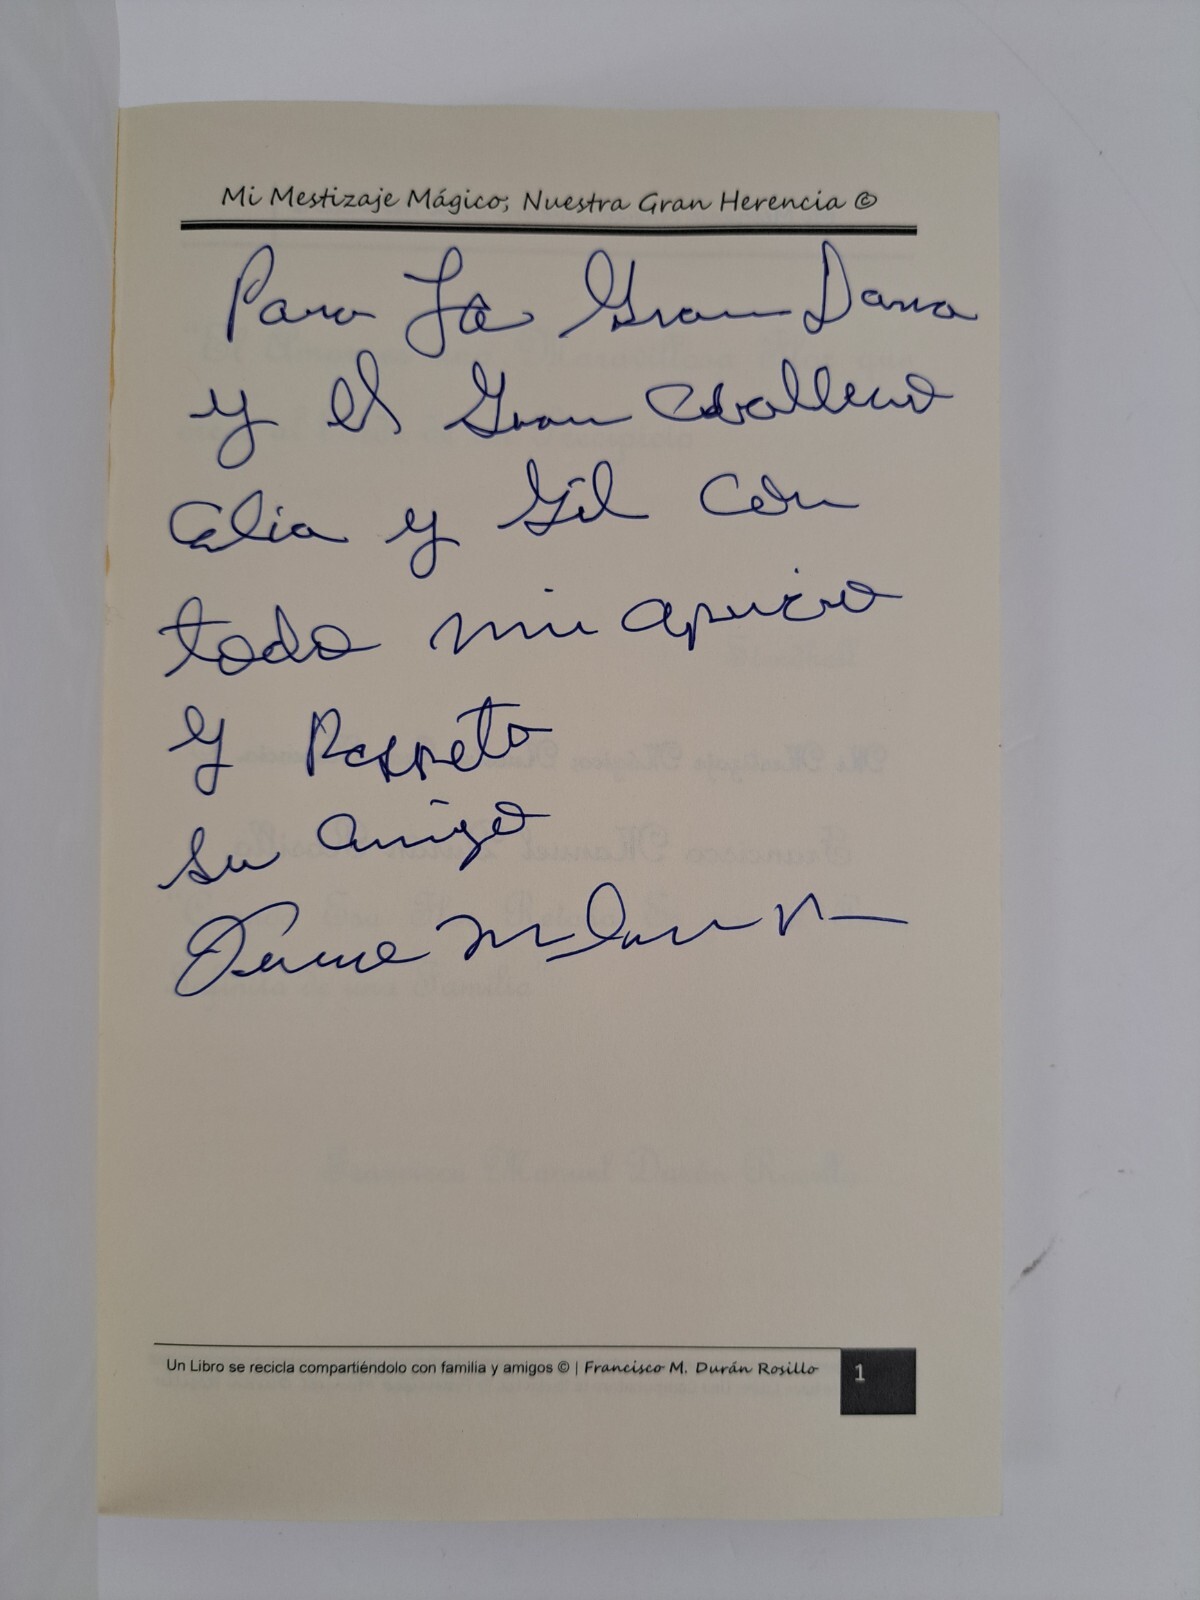 Mi Mestizaje Mágico; Nuestra Gran Herencia ©
Para La Gran Dama
y el Gran Caballero
Celia y Gil con
todo mi aprecio
y Respeto
su amigo
Un Libro se recicla compartiéndolo con familia y amigos © | Francisco M. Durán Rosillo
1